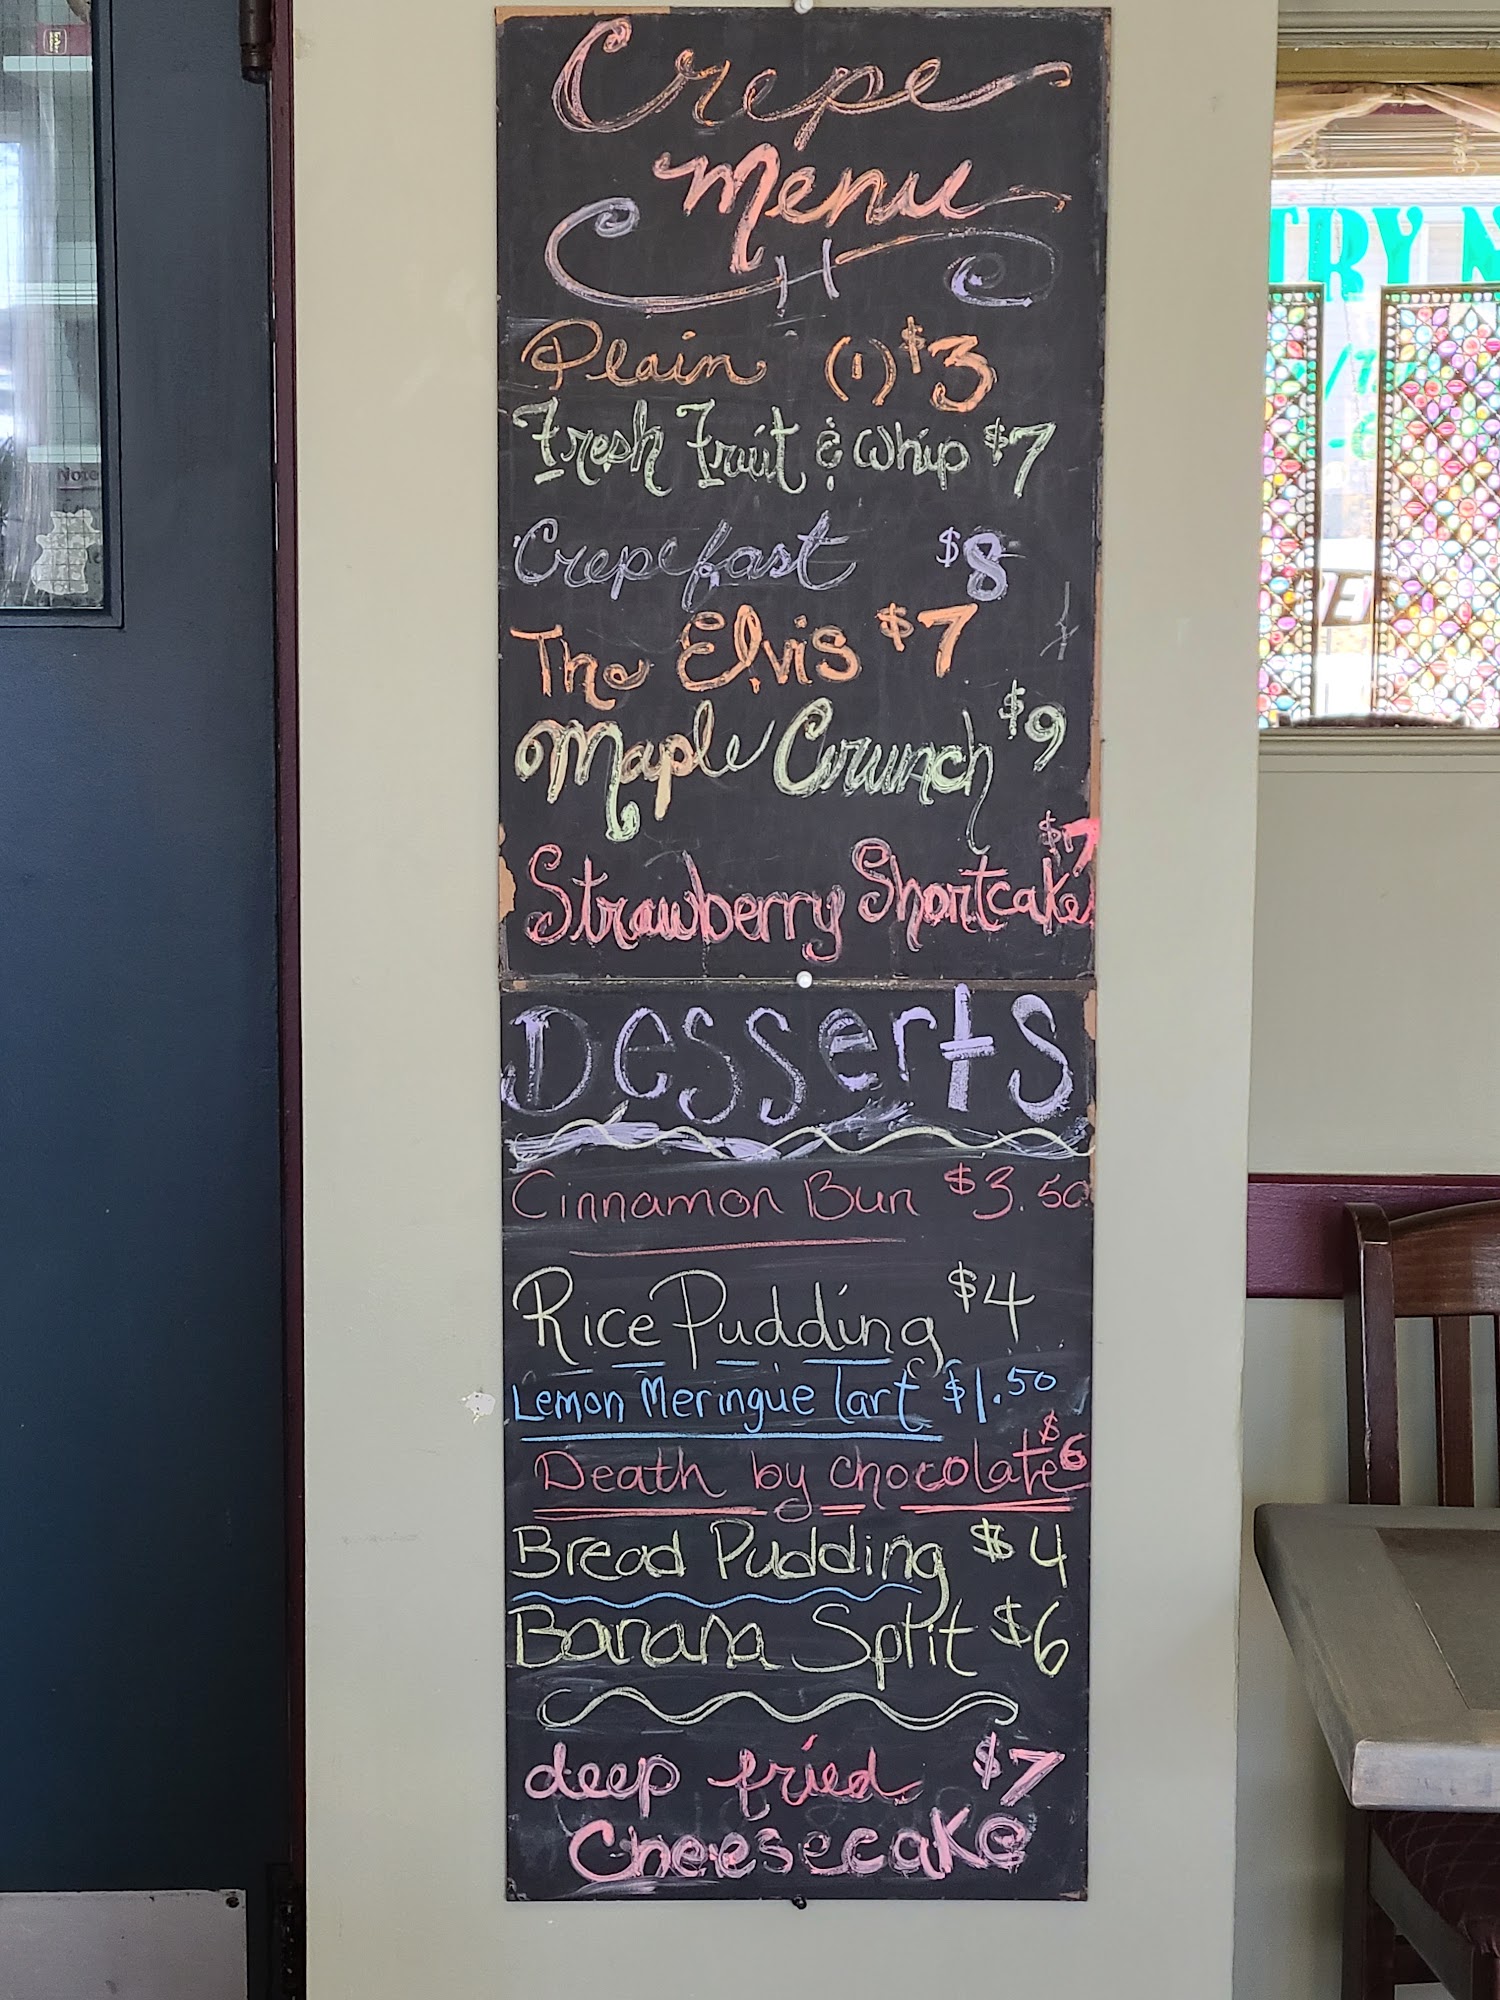 Crepe
Menu
Plain (1) $3
Fresh Fruit & Whip $7
Crepefast $8
The Elvis $7
Maple Crunch $9
Strawberry Shortcake $7
Desserts
Cinnamon Bun $3.50
Rice Pudding $4
Lemon Meringue Tart $1.50
Death by chocolate $6
Bread Pudding $4
Banana Split $6
deep fried $7
Cheesecake
TRY N
Note